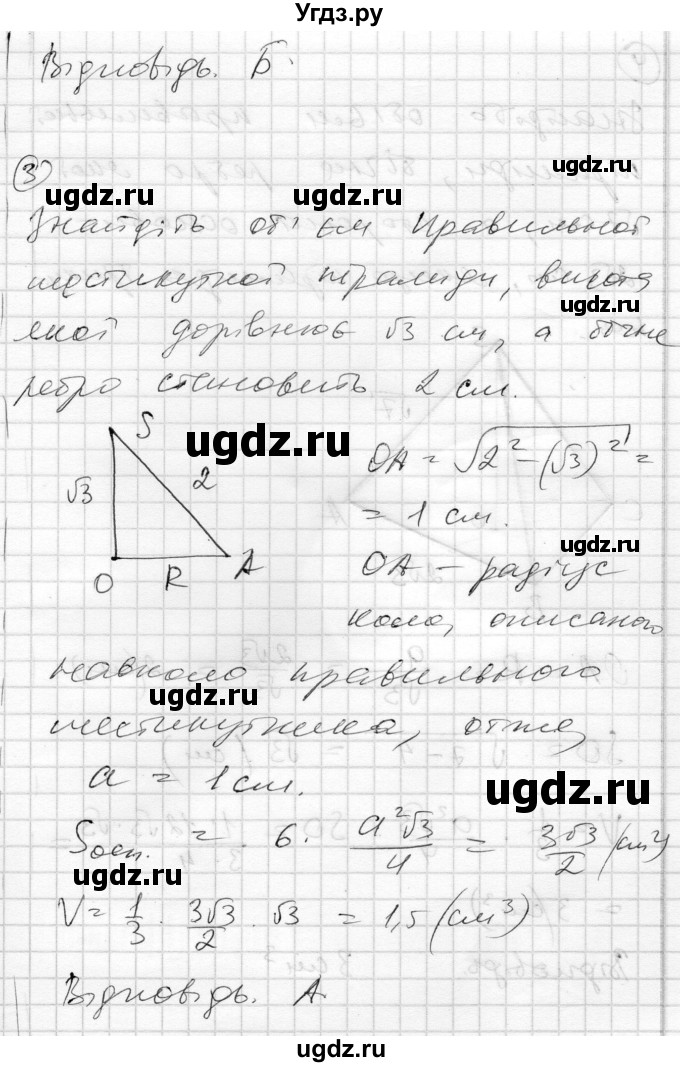 Угдз.ру
Відповідь. Б.
③
ugdz.ru ugdz.ru
Знайдіть об'єм правильної
шестикутної піраміди, висота
ugdz.ru
якої дорівнює √3 см, а бічне
ребро становить 2 см.
S
ugdz.ru
√3 2
OA = √(2² − (√3)²) =
= 1 см.
ugdz.ru
O R A
OA – радіус
кола, описаного
навколо правильного
ugdz.ru
шестикутника, отже,
a = 1 см.
ugdz.ru
Sосн. = 6 · a²√3/4 = 3√3/2 (см²)
ugdz.ru
V = 1/3 · 3√3/2 · √3 = 1,5 (см³)
ugdz.ru
Відповідь. А.
ugdz.ru